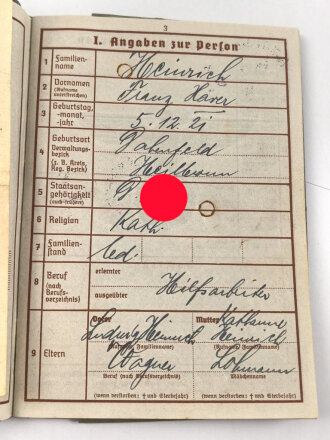 3
I. Angaben zur Person
1 Familien-
name
Heinrich
2 Vornamen
(Rufname
unterstreichen)
Franz Xaver
3 Geburtstag,
-monat,
-jahr
5.12.21
4 Geburtsort
Verwaltungs-
bezirk
(z. B. Kreis,
Reg. Bezirk)
Heilbronn
5 Staatsan-
gehörigkeit
(auch frühere)
6 Religion
Kath.
7 Familien-
stand
led.
8 Beruf
(nach
Berufs-
verzeichnis)
erlernter
ausgeübter
Hilfsarbeiter
9 Eltern
Vater
Ludwig Heinrich
(Rufname, Familienname)
Wagner
Beruf (nach Berufsverzeichnis)
(wenn verstorben: † und Sterbejahr)
Mutter
Heinrich
(Rufname, Familienname)
Mädchenname
(wenn verstorben: † und Sterbejahr)